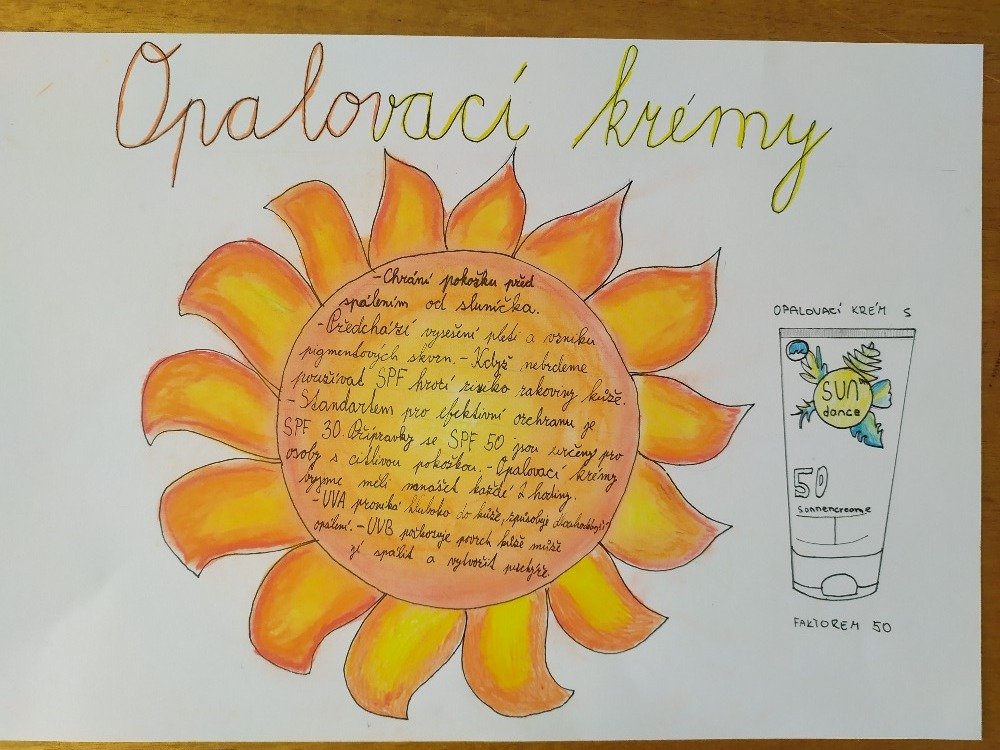 Opalovací krémy
-Chrání pokožku před
spálením od sluníčka.
-Předchází vysešení pleti a vzniku
pigmentových skvrn. - Když nebudeme
používat SPF hrotí riziko rakoviny kůže.
- Standartem pro efektivní ochranu je
SPF 30. Přípravky se SPF 50 jsou určeny pro
osoby s citlivou pokožkou. - Opalovací krémy
bysme měli nanášet každé 2 hodiny.
- UVA proniká hluboko do kůže, způsobuje
opálení. - UVB poškozuje povrch kůže může
jí spálit a vytvořit puchýře.
OPALOVACÍ KRÉM S
SUN
dance
50
Sonnencreome
FAKTOREM 50